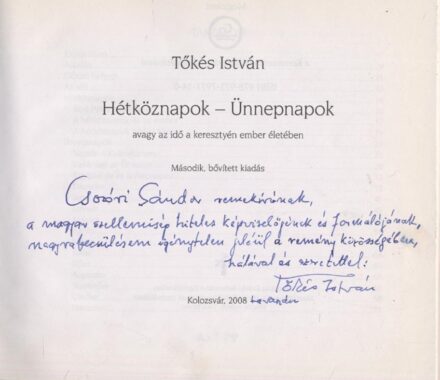 Tőkés István
Hétköznapok – Ünnepnapok
avagy az idő a keresztyén ember életében
Második, bővített kiadás
Csoóri Sándor remekírónak,
a magyar szellemiség hiteles képviselőjének és formálójának,
nagyrabecsülésem igénytelen jeléül a remény közösségében,
hálával és szeretettel:
Tőkés István
Kolozsvár, 2008